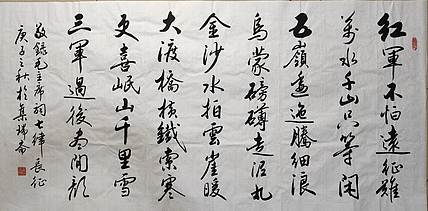 紅軍不怕遠征難
萬水千山只等閑
五嶺逶迤騰細浪
烏蒙磅礴走泥丸
金沙水拍雲崖暖
大渡橋橫鐵索寒
更喜岷山千里雪
三軍過後盡開顏
敬錄毛主席詞七律長征
庚子之秋於集瑞齋